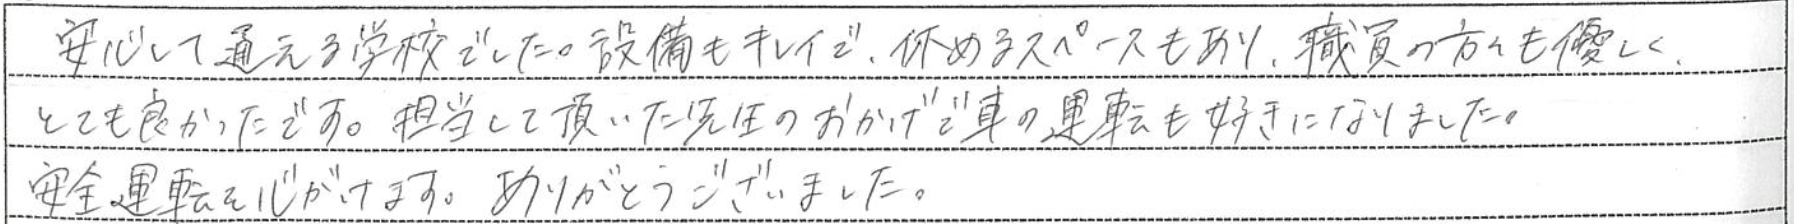 安心して通える学校でした。設備もキレイで、休めるスペースもあり、職員の方々も優しく、
とても良かったです。担当して頂いた先生のおかげで車の運転も好きになりました。
安全運転を心がけます。ありがとうございました。